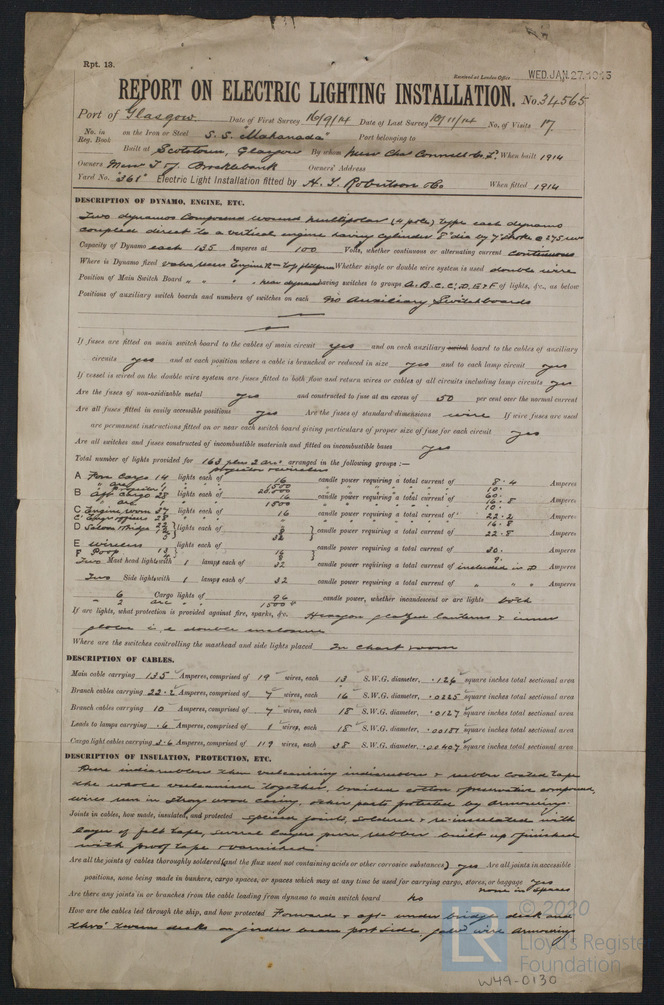 Rpt. 13.
Received at London Office WED. JAN. 27. 1915
REPORT ON ELECTRIC LIGHTING INSTALLATION. No. 34565
Port of Glasgow Date of First Survey 16/9/14 Date of Last Survey 18/11/14 No. of Visits 17
No. in Reg. Book on the Iron or Steel S.S. "Mahanada" Port belonging to
Built at Scotstoun, Glasgow By whom Messrs Chas Connell & Co Ld When built 1914
Owners Messrs T & J. Brocklebank Owners' Address
Yard No. "361" Electric Light Installation fitted by H. T. Robertson & Co When fitted 1914
DESCRIPTION OF DYNAMO, ENGINE, ETC.
Two dynamos Compound wound multipolar (4 pole) type each dynamo
coupled direct to a vertical engine having cylinder 8" dia by 7" stroke @ 275 revs
Capacity of Dynamo each 135 Amperes at 100 Volts, whether continuous or alternating current continuous
Where is Dynamo fixed Engine Rm top platform Whether single or double wire system is used double wire
Position of Main Switch Board " " " near dynamo having switches to groups A. B. C. C', D. E & F of lights, &c., as below
Positions of auxiliary switch boards and numbers of switches on each No Auxiliary Switchboards
If fuses are fitted on main switch board to the cables of main circuit yes and on each auxiliary switch board to the cables of auxiliary
circuits yes and at each position where a cable is branched or reduced in size yes and to each lamp circuit yes
If vessel is wired on the double wire system are fuses fitted to both flow and return wires or cables of all circuits including lamp circuits yes
Are the fuses of non-oxidizable metal yes and constructed to fuse at an excess of 50 per cent over the normal current
Are all fuses fitted in easily accessible positions yes Are the fuses of standard dimensions wire If wire fuses are used
are permanent instructions fitted on or near each switch board giving particulars of proper size of fuse for each circuit yes
Are all switch and fuses constructed of incombustible materials and fitted on incombustible bases yes
Total number of lights provided for 163 plus 2 arc, arranged in the following groups :—
projector & wireless
A Fore Cargo 14 lights each of 16 candle power requiring a total current of 8.4 Amperes
" arc 1 1500 10.
Projector 1 25.000 60.
B Aft Cargo 28 lights each of 16 candle power requiring a total current of 16.8 Amperes
" arc 1 1500 10.
C Engine room 37 lights each of 16 candle power requiring a total current of 22.2 Amperes
C' Engr officers 28 " 16.8
D Saloon & Bridge lights each of 8 32 candle power requiring a total current of 22.8 Amperes
E wireless lights each of candle power requiring a total current of 30. Amperes
F Poop 13 16 9.
Two Mast head lights with 1 lamps each of 32 candle power requiring a total current of included in D Amperes
Two Side lights with 1 lamps each of 32 candle power requiring a total current of " " Amperes
6 Cargo lights of 96 candle power, whether incandescent or arc lights both
" 2 arc " 1500 "
If arc lights, what protection is provided against fire, sparks, &c. Hexagon glazed lanterns & inner
globes i.e. double enclosure
Where are the switches controlling the masthead and side lights placed In Chart room
DESCRIPTION OF CABLES.
Main cable carrying 135 Amperes, comprised of 19 wires, each 13 S.W.G. diameter, .126 square inches total sectional area
Branch cables carrying 22.2 Amperes, comprised of 7 wires, each 16 S.W.G. diameter, .0225 square inches total sectional area
Branch cables carrying 10 Amperes, comprised of 7 wires, each 18 S.W.G. diameter, .0127 square inches total sectional area
Leads to lamps carrying .6 Amperes, comprised of 1 wires, each 18 S.W.G. diameter, .00181 square inches total sectional area
Cargo light cables carrying 3.6 Amperes, comprised of 119 wires, each 38 S.W.G. diameter, .00407 square inches total sectional area
DESCRIPTION OF INSULATION, PROTECTION, ETC.
Pure indiarubber then vulcanising indiarubber & rubber coated tape
the whole vulcanised together, braided cotton & preservative compound,
wires run in strong wood casing, other parts protected by Armouring.
Joints in cables, how made, insulated, and protected spliced joints, soldered & re-insulated with
layer of felt tape, several layers pure rubber built up & finished
with proof tape & varnished.
Are all the joints of cables thoroughly soldered (and the flux used not containing acids or other corrosive substances) yes Are all joints in accessible
positions, none being made in bunkers, cargo spaces, or spaces which may at any time be used for carrying cargo, stores, or baggage yes none in spaces
Are there any joints in or branches from the cable leading from dynamo to main switch board no
How are the cables led through the ship, and how protected Forward & aft under bridge deck and
thro' tween decks on girder beam port side, galvd wire Armouring
© 2020
LR
Lloyd's Register
Foundation
W49-0130